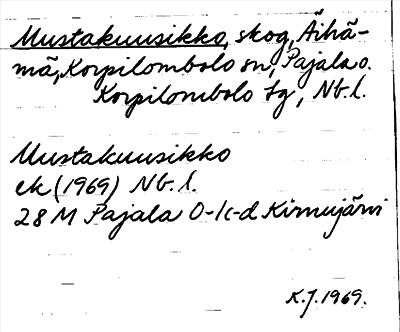 Mustakuusikko, skog, Äihä-
mä, Korpilombolo sn, Pajala o.
Korpilombolo tg, Nb. l.
Mustakuusikko
ek (1969) Nb. l.
28 M Pajala 0-1c-d Kirnujärvi
K.J. 1969.